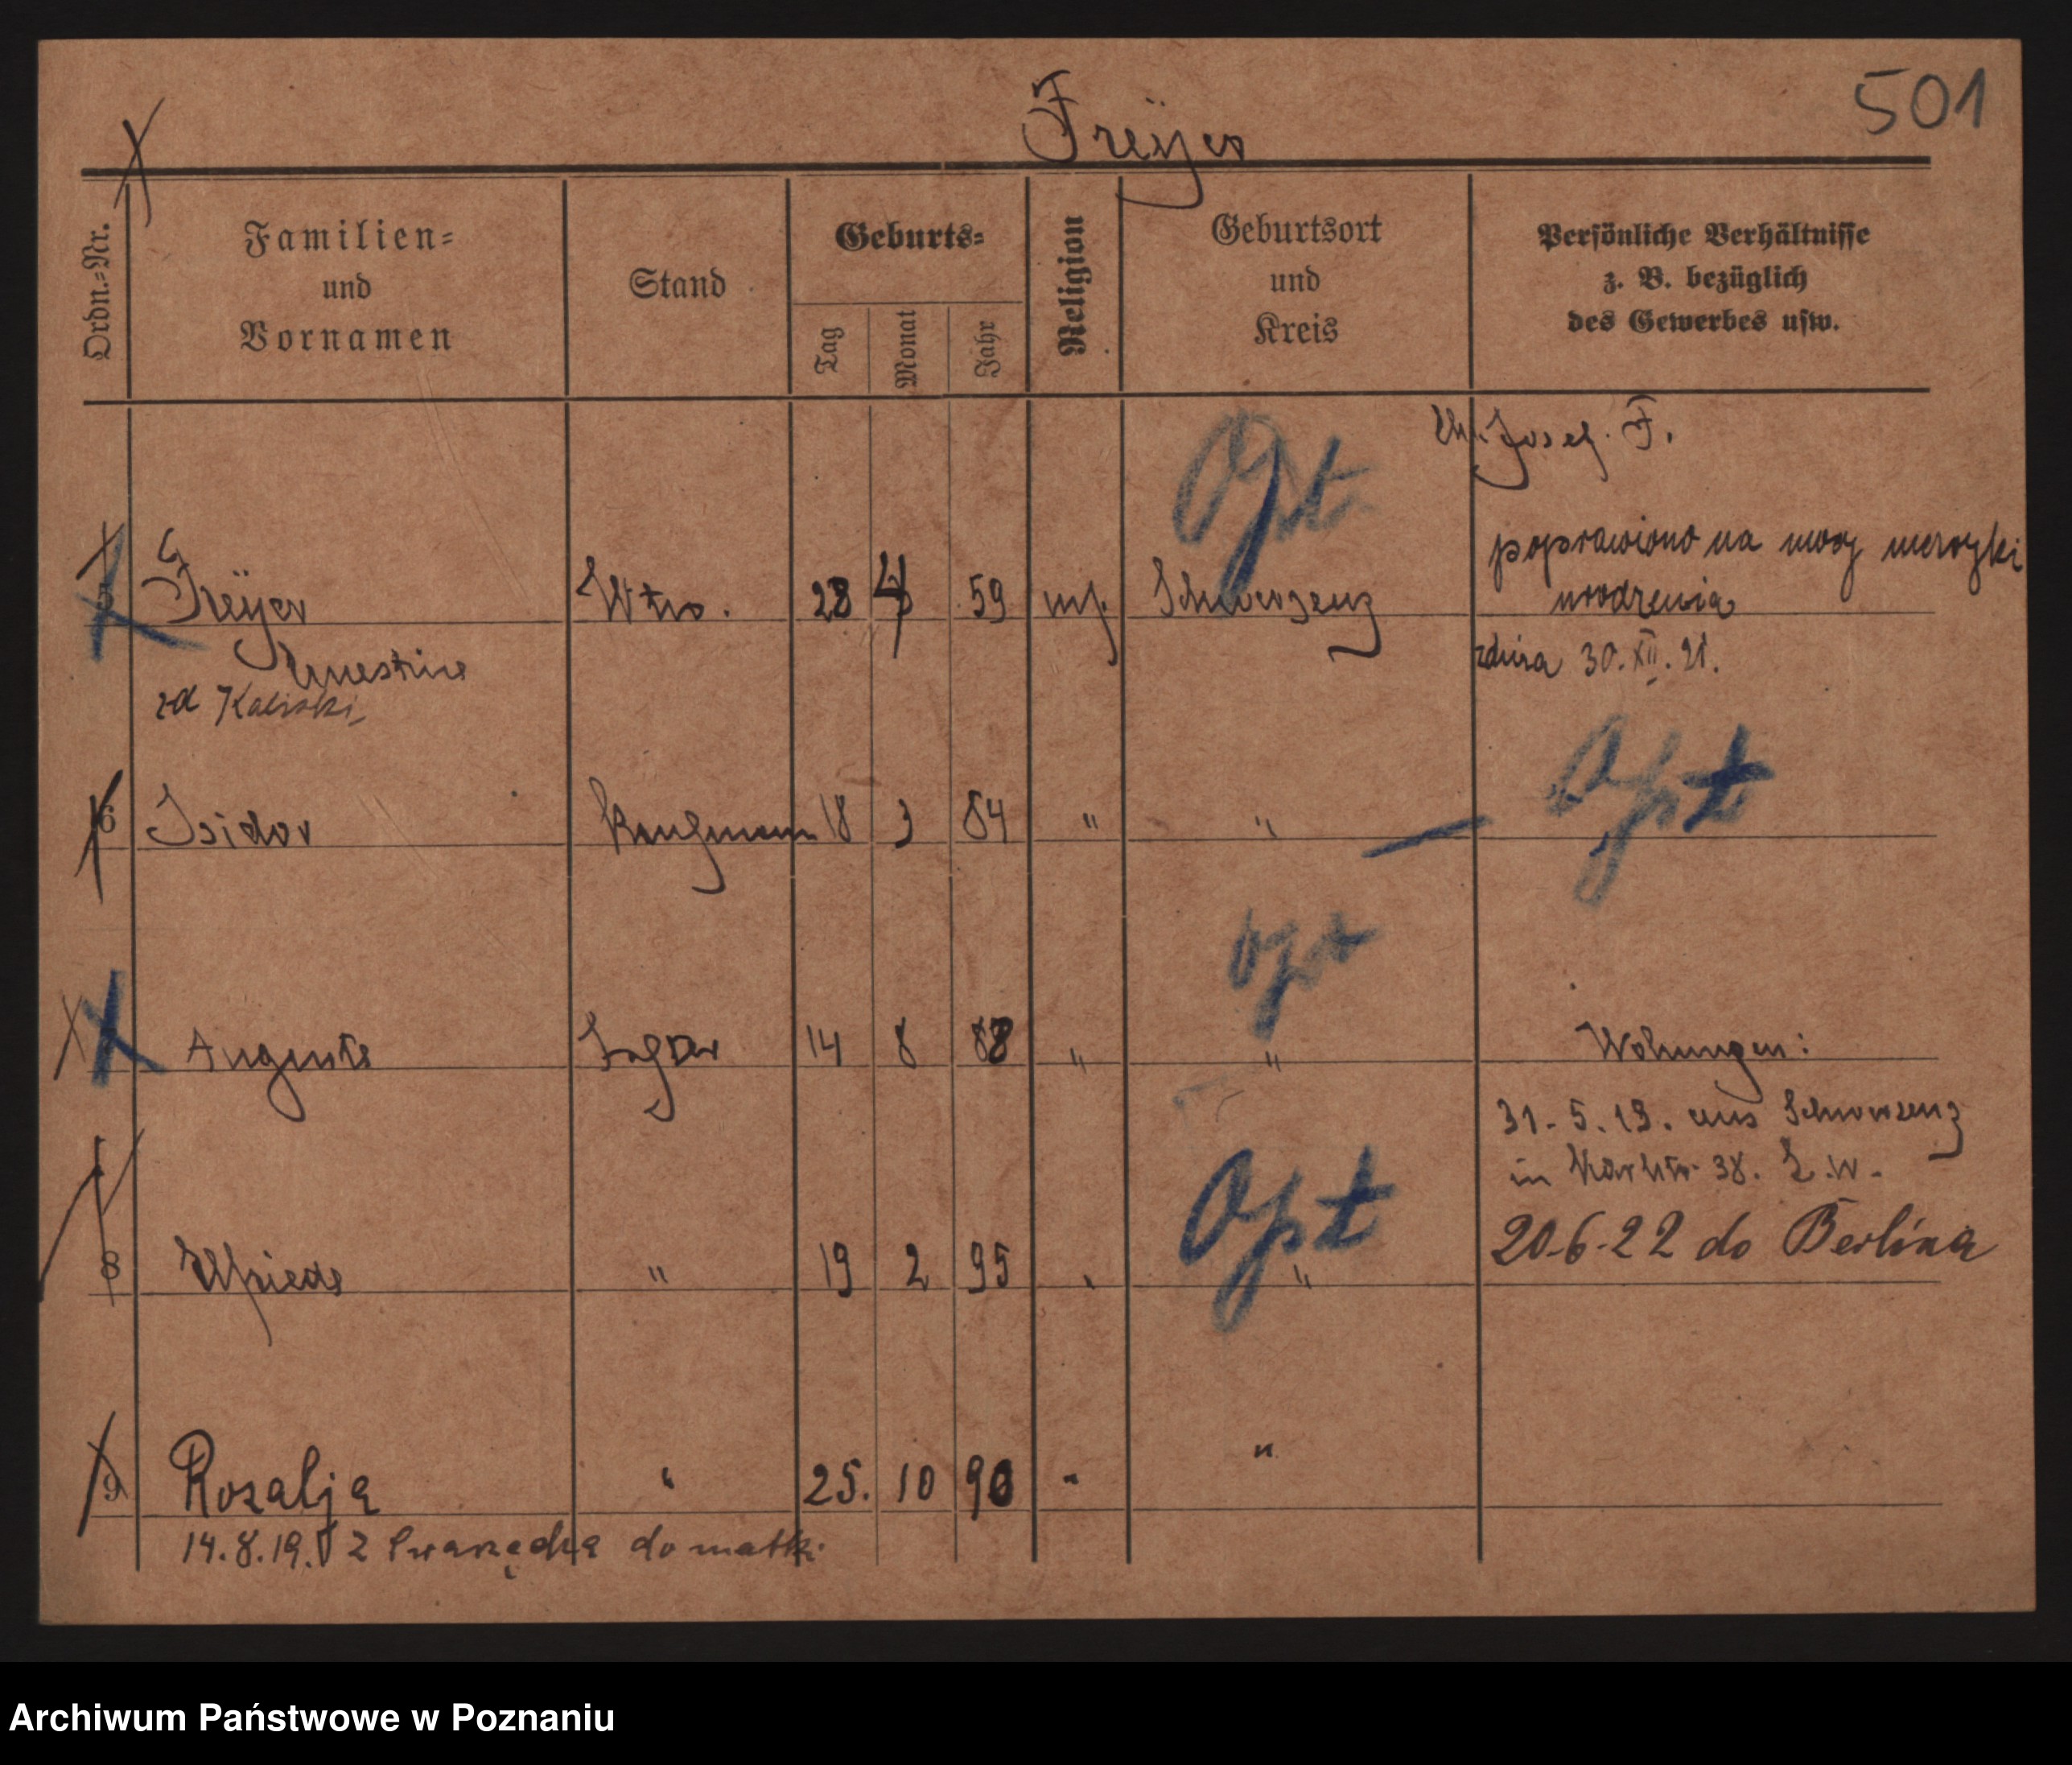 501
Freÿer
Ordn.-Nr.
Familien-
und
Vornamen
Stand
Geburts-
Tag
Monat
Jahr
Religion
Geburtsort
und
Kreis
Persönliche Verhältnisse
z. B. bezüglich
des Gewerbes usw.
Josef F.
Opt
5 Freÿer Wtw. 28 4 59 mos. Schwersenz
Ernestine
zd Kaliski
poprawiono na
urodzenia
dnia 30. XII. 21.
6 Isidor Kaufmann 18 3 84 " "
Opt
Opt
Auguste 14 8 88 " "
Wohnungen:
31. 5. 19. aus Schwersenz
in 38.
Opt
8 Elfriede " 19 2 95 " "
20-6-22 do Berlina
9 Rozalja " 25. 10 90 " "
14.8.19. z Swarzędza do matki
Archiwum Państwowe w Poznaniu